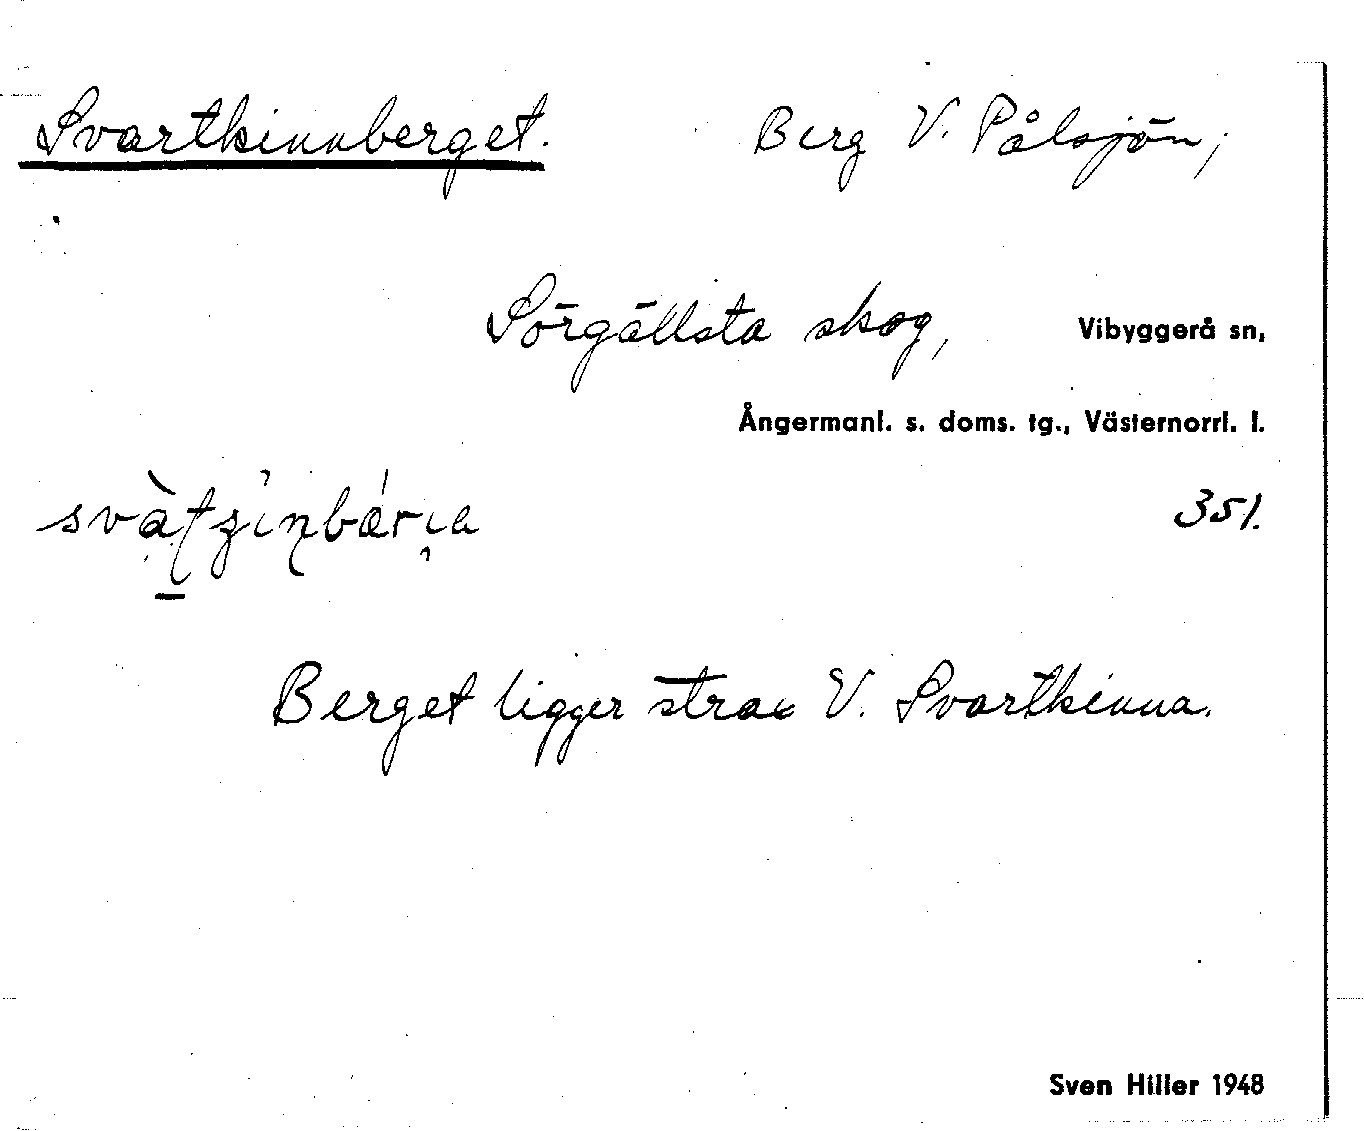 Svartkinnberget. Berg V. Pålsjön,
Sörgällsta skog, Vibyggerå sn,
Ångermanl. s. doms. tg., Västernorrl. l.
351.
Berget ligger strax V. Svartkinna.
Sven Hiller 1948